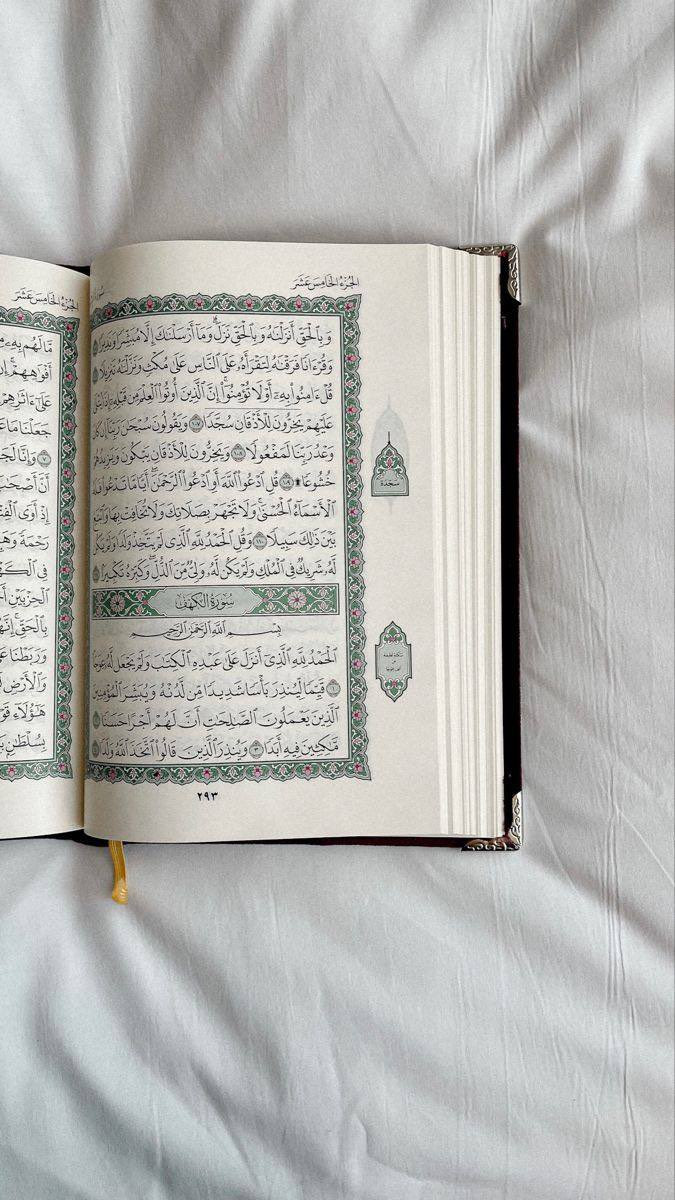 الجُزْءُ الخَامِسَ عَشَرَ
وَبِٱلْحَقِّ أَنزَلْنَٰهُ وَبِٱلْحَقِّ نَزَلَ ۗ وَمَآ أَرْسَلْنَٰكَ إِلَّا مُبَشِّرًا وَنَذِيرًا ١٠٥
وَقُرْءَانًا فَرَقْنَٰهُ لِتَقْرَأَهُۥ عَلَى ٱلنَّاسِ عَلَىٰ مُكْثٍ وَنَزَّلْنَٰهُ تَنزِيلًا ١٠٦
قُلْ ءَامِنُوا۟ بِهِۦٓ أَوْ لَا تُؤْمِنُوٓا۟ ۚ إِنَّ ٱلَّذِينَ أُوتُوا۟ ٱلْعِلْمَ مِن قَبْلِهِۦٓ إِذَا يُتْلَىٰ
عَلَيْهِمْ يَخِرُّونَ لِلْأَذْقَانِ سُجَّدًا ١٠٧ وَيَقُولُونَ سُبْحَٰنَ رَبِّنَآ إِن كَانَ
وَعْدُ رَبِّنَا لَمَفْعُولًا ١٠٨ وَيَخِرُّونَ لِلْأَذْقَانِ يَبْكُونَ وَيَزِيدُهُمْ
خُشُوعًا ۩ ١٠٩ قُلِ ٱدْعُوا۟ ٱللَّهَ أَوِ ٱدْعُوا۟ ٱلرَّحْمَٰنَ ۖ أَيًّا مَّا تَدْعُوا۟ فَلَهُ
ٱلْأَسْمَآءُ ٱلْحُسْنَىٰ ۚ وَلَا تَجْهَرْ بِصَلَاتِكَ وَلَا تُخَافِتْ بِهَا وَٱبْتَغِ
بَيْنَ ذَٰلِكَ سَبِيلًا ١١٠ وَقُلِ ٱلْحَمْدُ لِلَّهِ ٱلَّذِى لَمْ يَتَّخِذْ وَلَدًا وَلَمْ يَكُن
لَّهُۥ شَرِيكٌ فِى ٱلْمُلْكِ وَلَمْ يَكُن لَّهُۥ وَلِىٌّ مِّنَ ٱلذُّلِّ ۖ وَكَبِّرْهُ تَكْبِيرًۢا ١١١
سُورَةُ الكَهْفِ
بِسْمِ ٱللَّهِ ٱلرَّحْمَٰنِ ٱلرَّحِيمِ
ٱلْحَمْدُ لِلَّهِ ٱلَّذِىٓ أَنزَلَ عَلَىٰ عَبْدِهِ ٱلْكِتَٰبَ وَلَمْ يَجْعَل لَّهُۥ عِوَجَا
١ قَيِّمًا لِّيُنذِرَ بَأْسًا شَدِيدًا مِّن لَّدُنْهُ وَيُبَشِّرَ ٱلْمُؤْمِنِينَ
ٱلَّذِينَ يَعْمَلُونَ ٱلصَّٰلِحَٰتِ أَنَّ لَهُمْ أَجْرًا حَسَنًا ٢
مَّٰكِثِينَ فِيهِ أَبَدًا ٣ وَيُنذِرَ ٱلَّذِينَ قَالُوا۟ ٱتَّخَذَ ٱللَّهُ وَلَدًا ٤
٢٩٣
سَجْدَة
سكتة لطيفة
الجُزْءُ الخَامِسَ عَشَرَ
مَّا لَهُم بِهِۦ
أَفْوَٰهِهِمْ ۚ
عَلَىٰٓ ءَاثَٰرِهِمْ
جَعَلْنَا مَا
٧ وَإِنَّا
أَنَّ أَصْحَٰبَ
إِذْ أَوَى
رَحْمَةً
فِى
ٱلْحِزْبَيْنِ
بِٱلْحَقِّ ۚ
وَرَبَطْنَا
وَٱلْأَرْضِ
هَٰٓؤُلَآءِ
بِسُلْطَٰنٍۭ